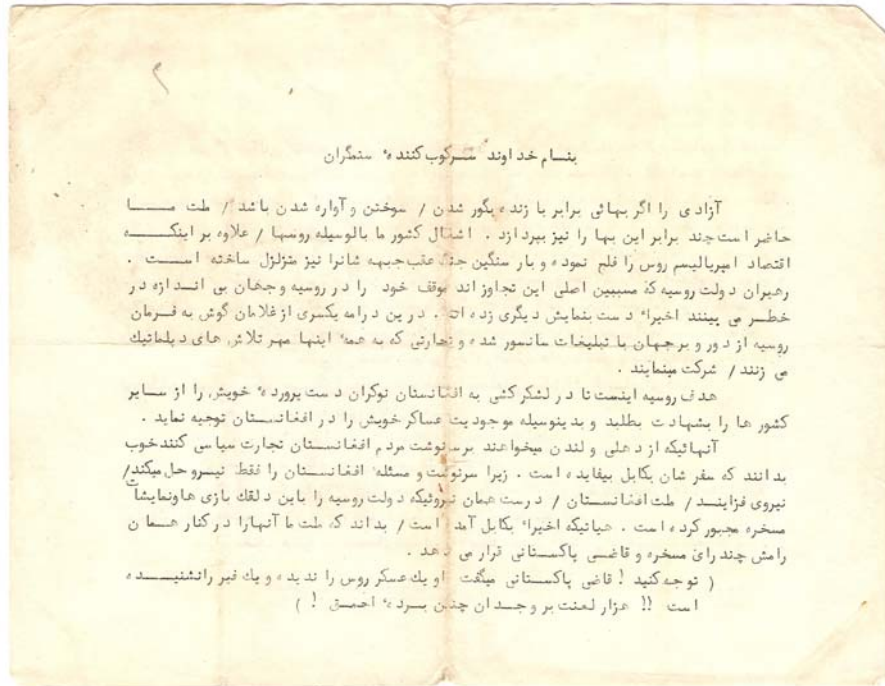 بنــام خداوند سرکوب کننده ٔ ستمگران
آزادی را اگر بهائی برابر با زنده بگور شدن / سوختن و آواره شدن باشد / ملت مــــا
حاضر است چند برابر این بها را نیز بپردازد . اشغال کشور ما بالوسیله روسها / علاوه بر اینکــــه
اقتصاد امپریالیسم روس را فلج نموده و بار سنگین جنگ عقب جبهه شانرا نیز متزلزل ساخته اســـت .
رهبران دولت روسیه که مسببین اصلی این تجاوز اند موقف خود را در روسیه و جهان بی انــدازه در
خطــر می بینند اخیرا ٔ دست بنمایش دیگری زده اند . درین درامه یکسری از غلامان گوش به فــرمان
روسیه از دور و بر جهان با تبلیغات سانسور شده و تجارتی که به همه ٔ اینها مهر تلاش های دیپلماتیك
می زنند / شرکت مینمایند .
هدف روسیه اینست تا در لشکر کشی به افغانستان نوکران دست پرورده ٔ خویش را از ســایر
کشور ها را بشهادت بطلبد و بدینوسیله موجودیت عساکر خویش را در افغانســتان توجیه نماید .
آنهائیکه از دهلی و لندن میخواهند برسرنوشت مردم افغانســتان تجارت سیاسی کنند خوب
بدانند که سفر شان بکابل بیفایده است . زیرا سرنوشت و مسئله ٔ افغانســتان را فقط نیــرو حل میکند/
نیروی فزاینــد / ملت افغانســتان / درست همان نیروئیکه دولت روسیه را باین دلقك بازی ها ونمایشات
مسخره مجبور کرده است . هیاتیکه اخیرا ٔ بکابل آمده است / بداند که ملت ما آنهارا در کنار همــان
رامش چندرای مسخره و قاضــی پاکســتانی قرار می دهد .
( توجه کنید ! قاضی پاکســتانی میگفت او یك عسکر روس را ندیده و یك فیر رانشنیـــــده
است !! هزار لعنت بر وجــدان چنین بــرده ٔ احمــق ! )